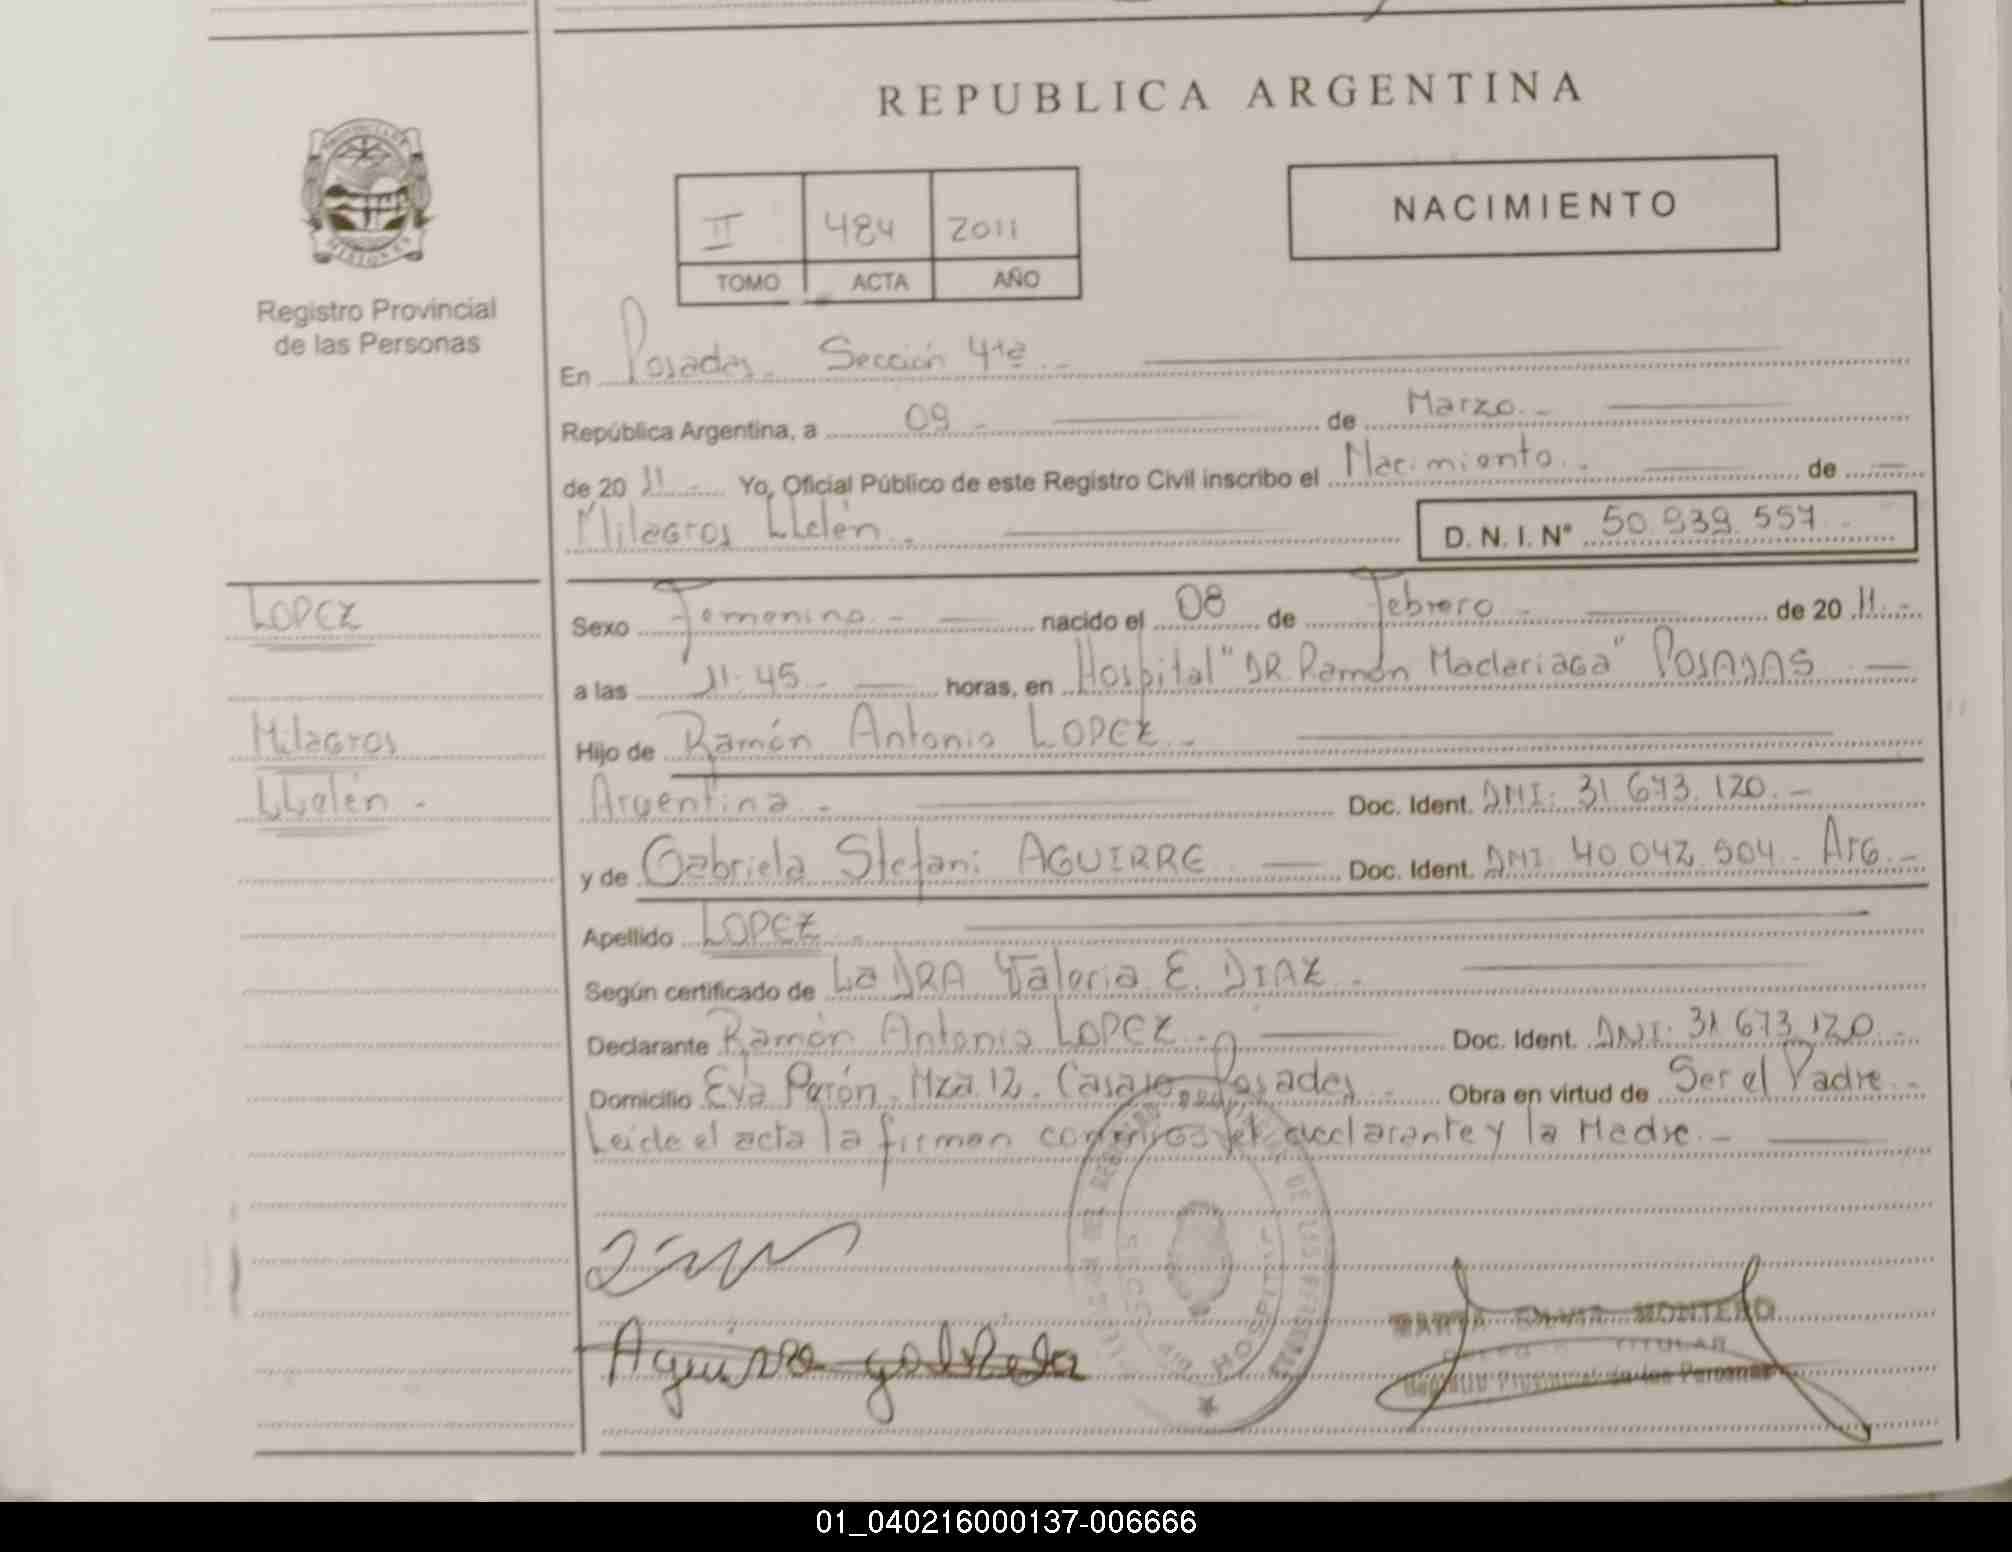 REPUBLICA ARGENTINA
PROVINCIA DE MISIONES
Registro Provincial
de las Personas
II 484 2011
TOMO ACTA AÑO
NACIMIENTO
En Posadas. Sección 4ta.-
República Argentina, a 09.- de Marzo.-
de 20 11.- Yo, Oficial Público de este Registro Civil inscribo el Nacimiento.- de
Milagros LLelén.-
D. N. I. N° 50.939.557.-
LOPEZ
Milagros
LLelén.-
Sexo Femenino.- nacido el 08 de Febrero.- de 20 11.-
a las 11.45.- horas, en Hospital "DR. Ramón Madariaga" POSADAS
Hijo de Ramón Antonio LOPEZ.-
Argentina.- Doc. Ident. DNI: 31.673.120.-
y de Gabriela Stefani AGUIRRE Doc. Ident. DNI. 40.042.904.- Arg.-
Apellido LOPEZ.-
Según certificado de La DRA Valeria E. DIAZ.-
Declarante Ramón Antonio LOPEZ.- Doc. Ident. DNI: 31.673.120.-
Domicilio Eva Perón. Mza. 12. Posadas.- Obra en virtud de Ser el Padre.-
Leida el acta la firman conmigo el declarante y la Madre.-
Aguirre gabriela
HOSPITAL
MARTA SILVIA MONTERO
TITULAR
Registro Provincial de las Personas
01_040216000137-006666